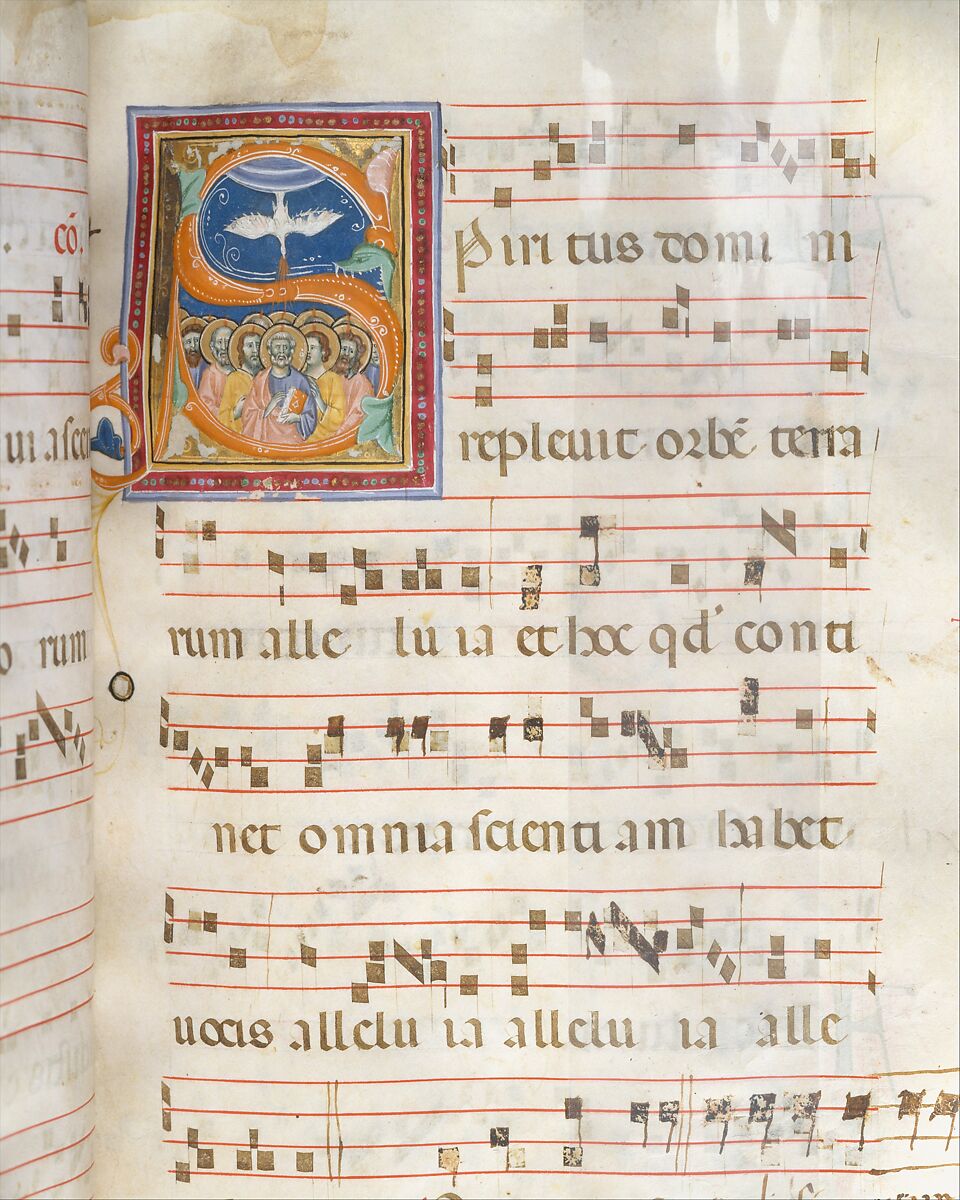 có.
Piri tus domi ni
repleuit orbē terra
rum alle lu ia et hoc qd' conti
net omnia scienti am habet
uocis allelu ia allelu ia alle
ui ascen
o rum